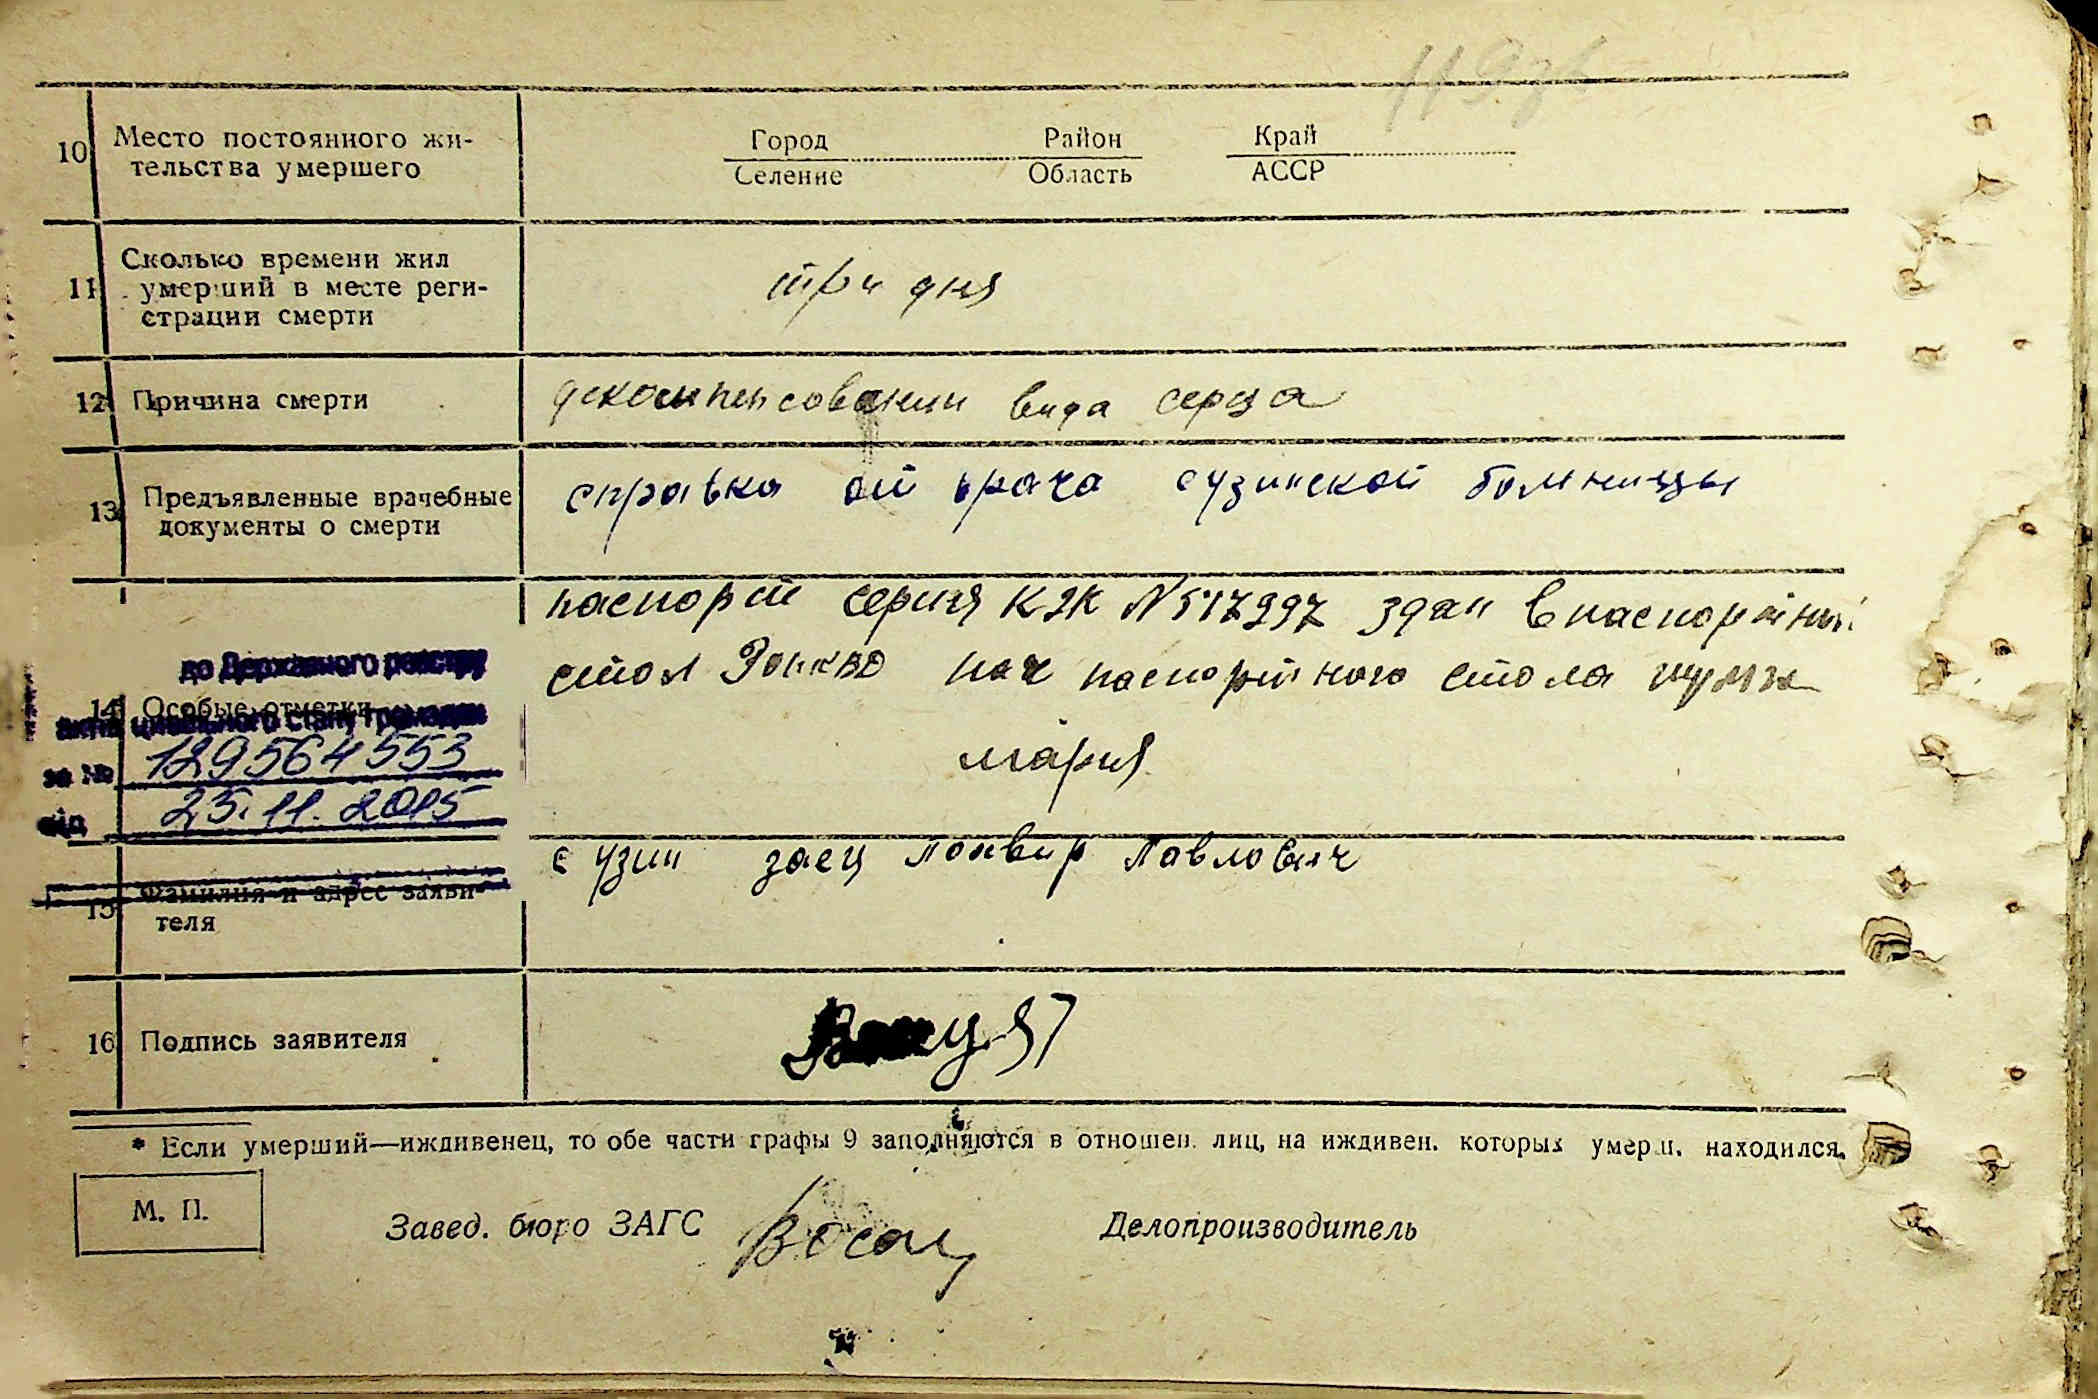 119зв
10 Место постоянного жи-
тельства умершего
Город Район Край
Селение Область АССР
11 Сколько времени жил
умерший в месте реги-
страции смерти
три дня
12 Причина смерти
декомпенсовании вида серца
13 Предъявленные врачебные
документы о смерти
справка от врача сузинской больницы
паспорт серия КЯК N 517997 здан в паспортный
стол нач паспортного стола
мария
до Державного реєстру
14 Особые отметки
актів цивільного стану громадян
за № 129564553
від 25.11.2015
15 Фамилия и адрес заяви-
теля
сузин заец Павлович
16 Подпись заявителя
* Если умерший—иждивенец, то обе части графы 9 заполняются в отношен. лиц, на иждивен. которых умерш. находился.
М. П.
Завед. бюро ЗАГС Делопроизводитель